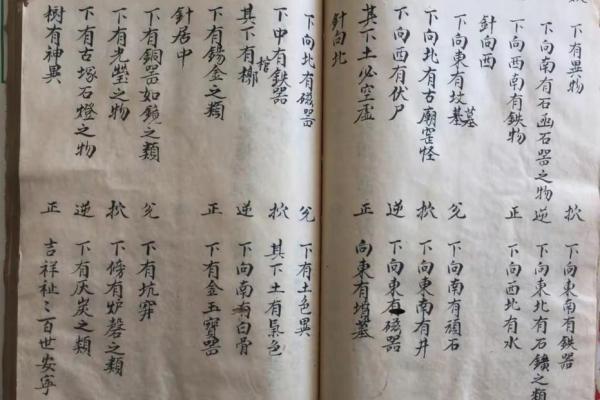 下有異物 抌 下東南有鉄器
下向南有石函石器之物 逆 下向東北有石鑛之類
下向西南有鉄物 正 下向西北有水
針向西
下向東有坟墓 兌 下向南有頑石
下向北有古廟窑怪 抌 下向東南有井
下向西有伏尸 逆 下向東有磁器
其下土必空虛 正 向東有墳墓
針向北
下向北有磁器 兌 下有土色異
下中有鉄器 抌 其下土有氣色
其下有棺槨 逆 下向南有白骨
下有錫金之類 正 下有金玉寶器
針居中
下有銅器如鏡之類 兌 下有坑穽
下有光瑩之物 抌 下傍有炉磬之類
下有古塚石燈之物 逆 下有灰炭之類
树有神異 正 吉祥祉〻百世安寧